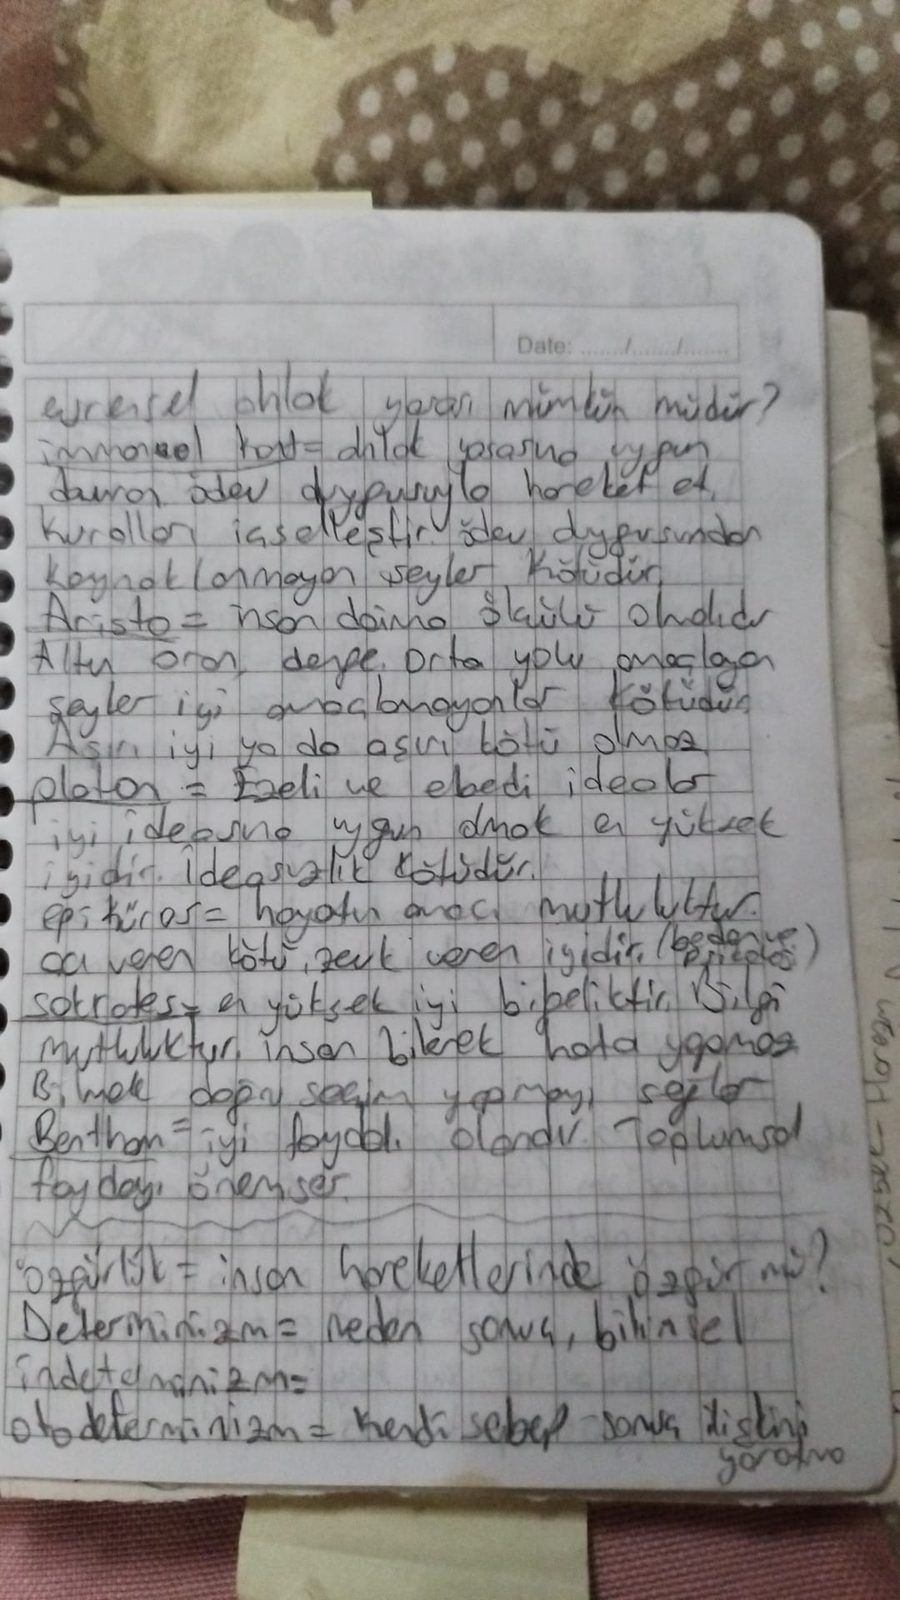 Date: ....../....../......
evrensel ahlak yasası mümkün müdür?
immanuel kant= ahlak yasasına uygun
davran ödev duygusuyla hareket et.
Kuralları içselleştir. ödev duygusundan
kaynaklanmayan şeyler kötüdür.
Aristo = insan daima ölçülü olmalıdır
Altın oran, denge. Orta yolu amaçlayan
şeyler iyi amaçlamayanlar kötüdür.
Aşırı iyi ya da aşırı kötü olmaz
platon = Ezeli ve ebedi idealar
iyi ideasına uygun olmak en yüksek
iyidir. İdeasızlık kötüdür.
epiküros= hayatın amacı mutluluktur.
acı veren kötü, zevk veren iyidir. (beden ve
sokrates= en yüksek iyi bilgeliktir. Bilgi
mutluluktur. insan bilerek hata yapmaz
Bilmek doğru seçim yapmayı sağlar
Bentham= iyi faydalı olandır. Toplumsal
faydayı önemser.
özgürlük = insan hareketlerinde özgür mü?
Determinizm= neden sonuç, bilimsel
indeterminizm=
otodeterminizm= kendi sebep-sonuç ilişkini
yaratma